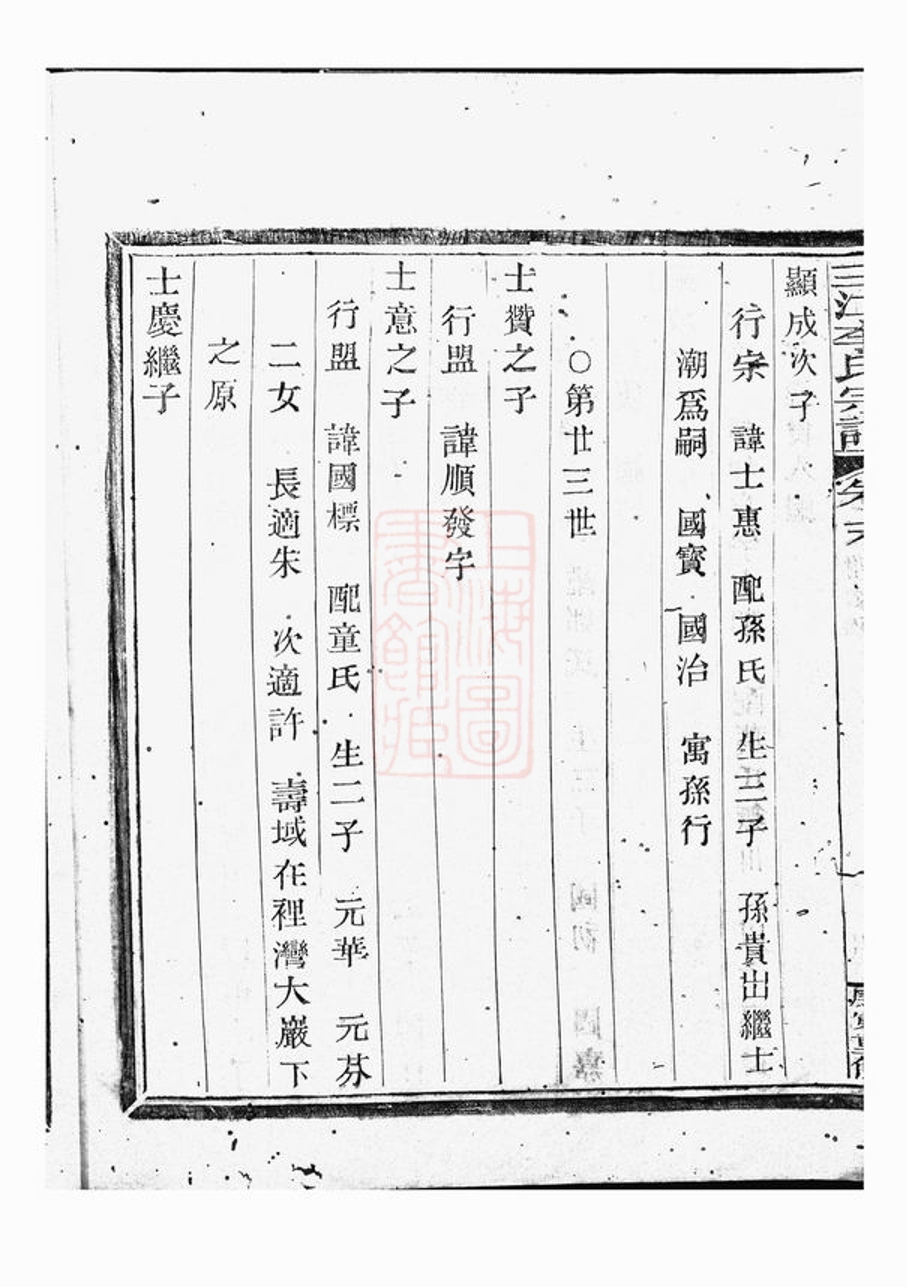 顯成次子
行宗 諱士惠 配孫氏 生三子 孫貴出繼士
潮爲嗣 國寳 國治 寓孫行
○第廿三世
士贊之子
行盟 諱順發字
士意之子
行盟 諱國標 配童氏 生二子 元華 元芬
二女 長適朱 次適許 壽域在裡灣大巖下
之原
士慶繼子
上海圖書館藏